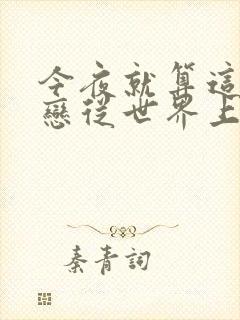 今夜就算這
戀從世界上
秦青詞